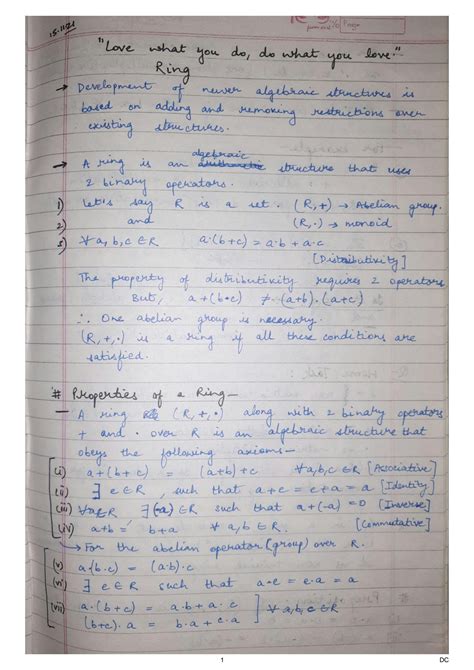 15.11.21
Page
"Love what you do, do what you love."
Ring
→ Development of newer algebraic structures is
based on adding and removing restrictions over
existing structures.
algebraic
→ A ring is an arithmetic structure that uses
2 binary operators.
1) Let's say R is a set. (R,+) → Abelian group.
2) and (R,·) → monoid
3) ∀a,b,c ∈R a·(b+c) = a·b + a·c
[Distributivity]
The property of distributivity requires 2 operators
But, a+(b•c) ≠ (a+b).(a+c)
∴ One abelian group is necessary.
(R,+,·) is a ring if all these conditions are
satisfied.
# Properties of a Ring—
— A ring (R,+,·) along with 2 binary operators
+ and · over R is an algebraic structure that
obeys the following axioms—
(i) a+(b+c) = (a+b)+c ∀a,b,c ∈R [Associative]
(ii) ∃ e∈R, such that a+e = e+a = a [Identity]
(iii) ∀a∈R ∃(-a)∈R such that a+(-a) = 0 [Inverse]
(iv) a+b = b+a ∀ a,b ∈R. [Commutative]
→ For the abelian operator (group) over R.
(v) a.(b.c) = (a.b).c
(vi) ∃ e∈R such that a•e = e.a = a
(vii) a.(b+c) = a.b + a.c ] ∀a,b,c∈R
(b+c).a = b.a + c.a
1
DC